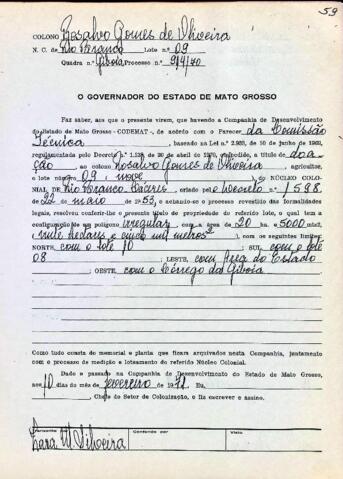 59
COLONO Rosalvo Gomes de Oliveira
N. C. de Rio Branco Lote n.º 09
Quadra n.º Giboia Processo n.º 919/70
O GOVERNADOR DO ESTADO DE MATO GROSSO
Faz saber, aos que o presente virem, que havendo a Companhia de Desenvolvimento
do Estado de Mato Grosso - CODEMAT -, de acôrdo com o Parecer da Comissão
Técnica, baseado na Lei n.º 2.925, de 10 de junho de 1969,
regulamentada pelo Decreto n.º de 20 de abril de 1970, expedido, a título de doa-
ção, ao colono Rosalvo Gomes de Oliveira, agricultor,
o lote número 09 (nove) do NÚCLEO COLO-
NIAL DE Rio Branco Cáceres criado pelo Decreto n.º 1598
de 22 de maio de 1953, e achando-se o processo revestido das formalidades
legais, resolveu conferir-lhe o presente título de propriedade do referido lote, o qual tem a
configuração de um polígono irregular com a área de 20 ha. e 5000 mts2,
(vinte hectares e cinco mil metros2), com os seguintes limites:
NORTE, com o lote 10; SUL, com o lote
08; LESTE, com Área do Estado
OESTE, com o Córrego da Giboia
Como tudo consta do memorial e planta que ficam arquivados nesta Companhia, juntamente
com o processo de medição e loteamento do referido Núcleo Colonial.
Dado e passado na Companhia de Desenvolvimento do Estado de Mato Grosso,
aos 10 dias do mês de fevereiro de 1971. Eu,
, Chefe do Setor de Colonização, o fiz escrever e assino.
Conferido por: Visto